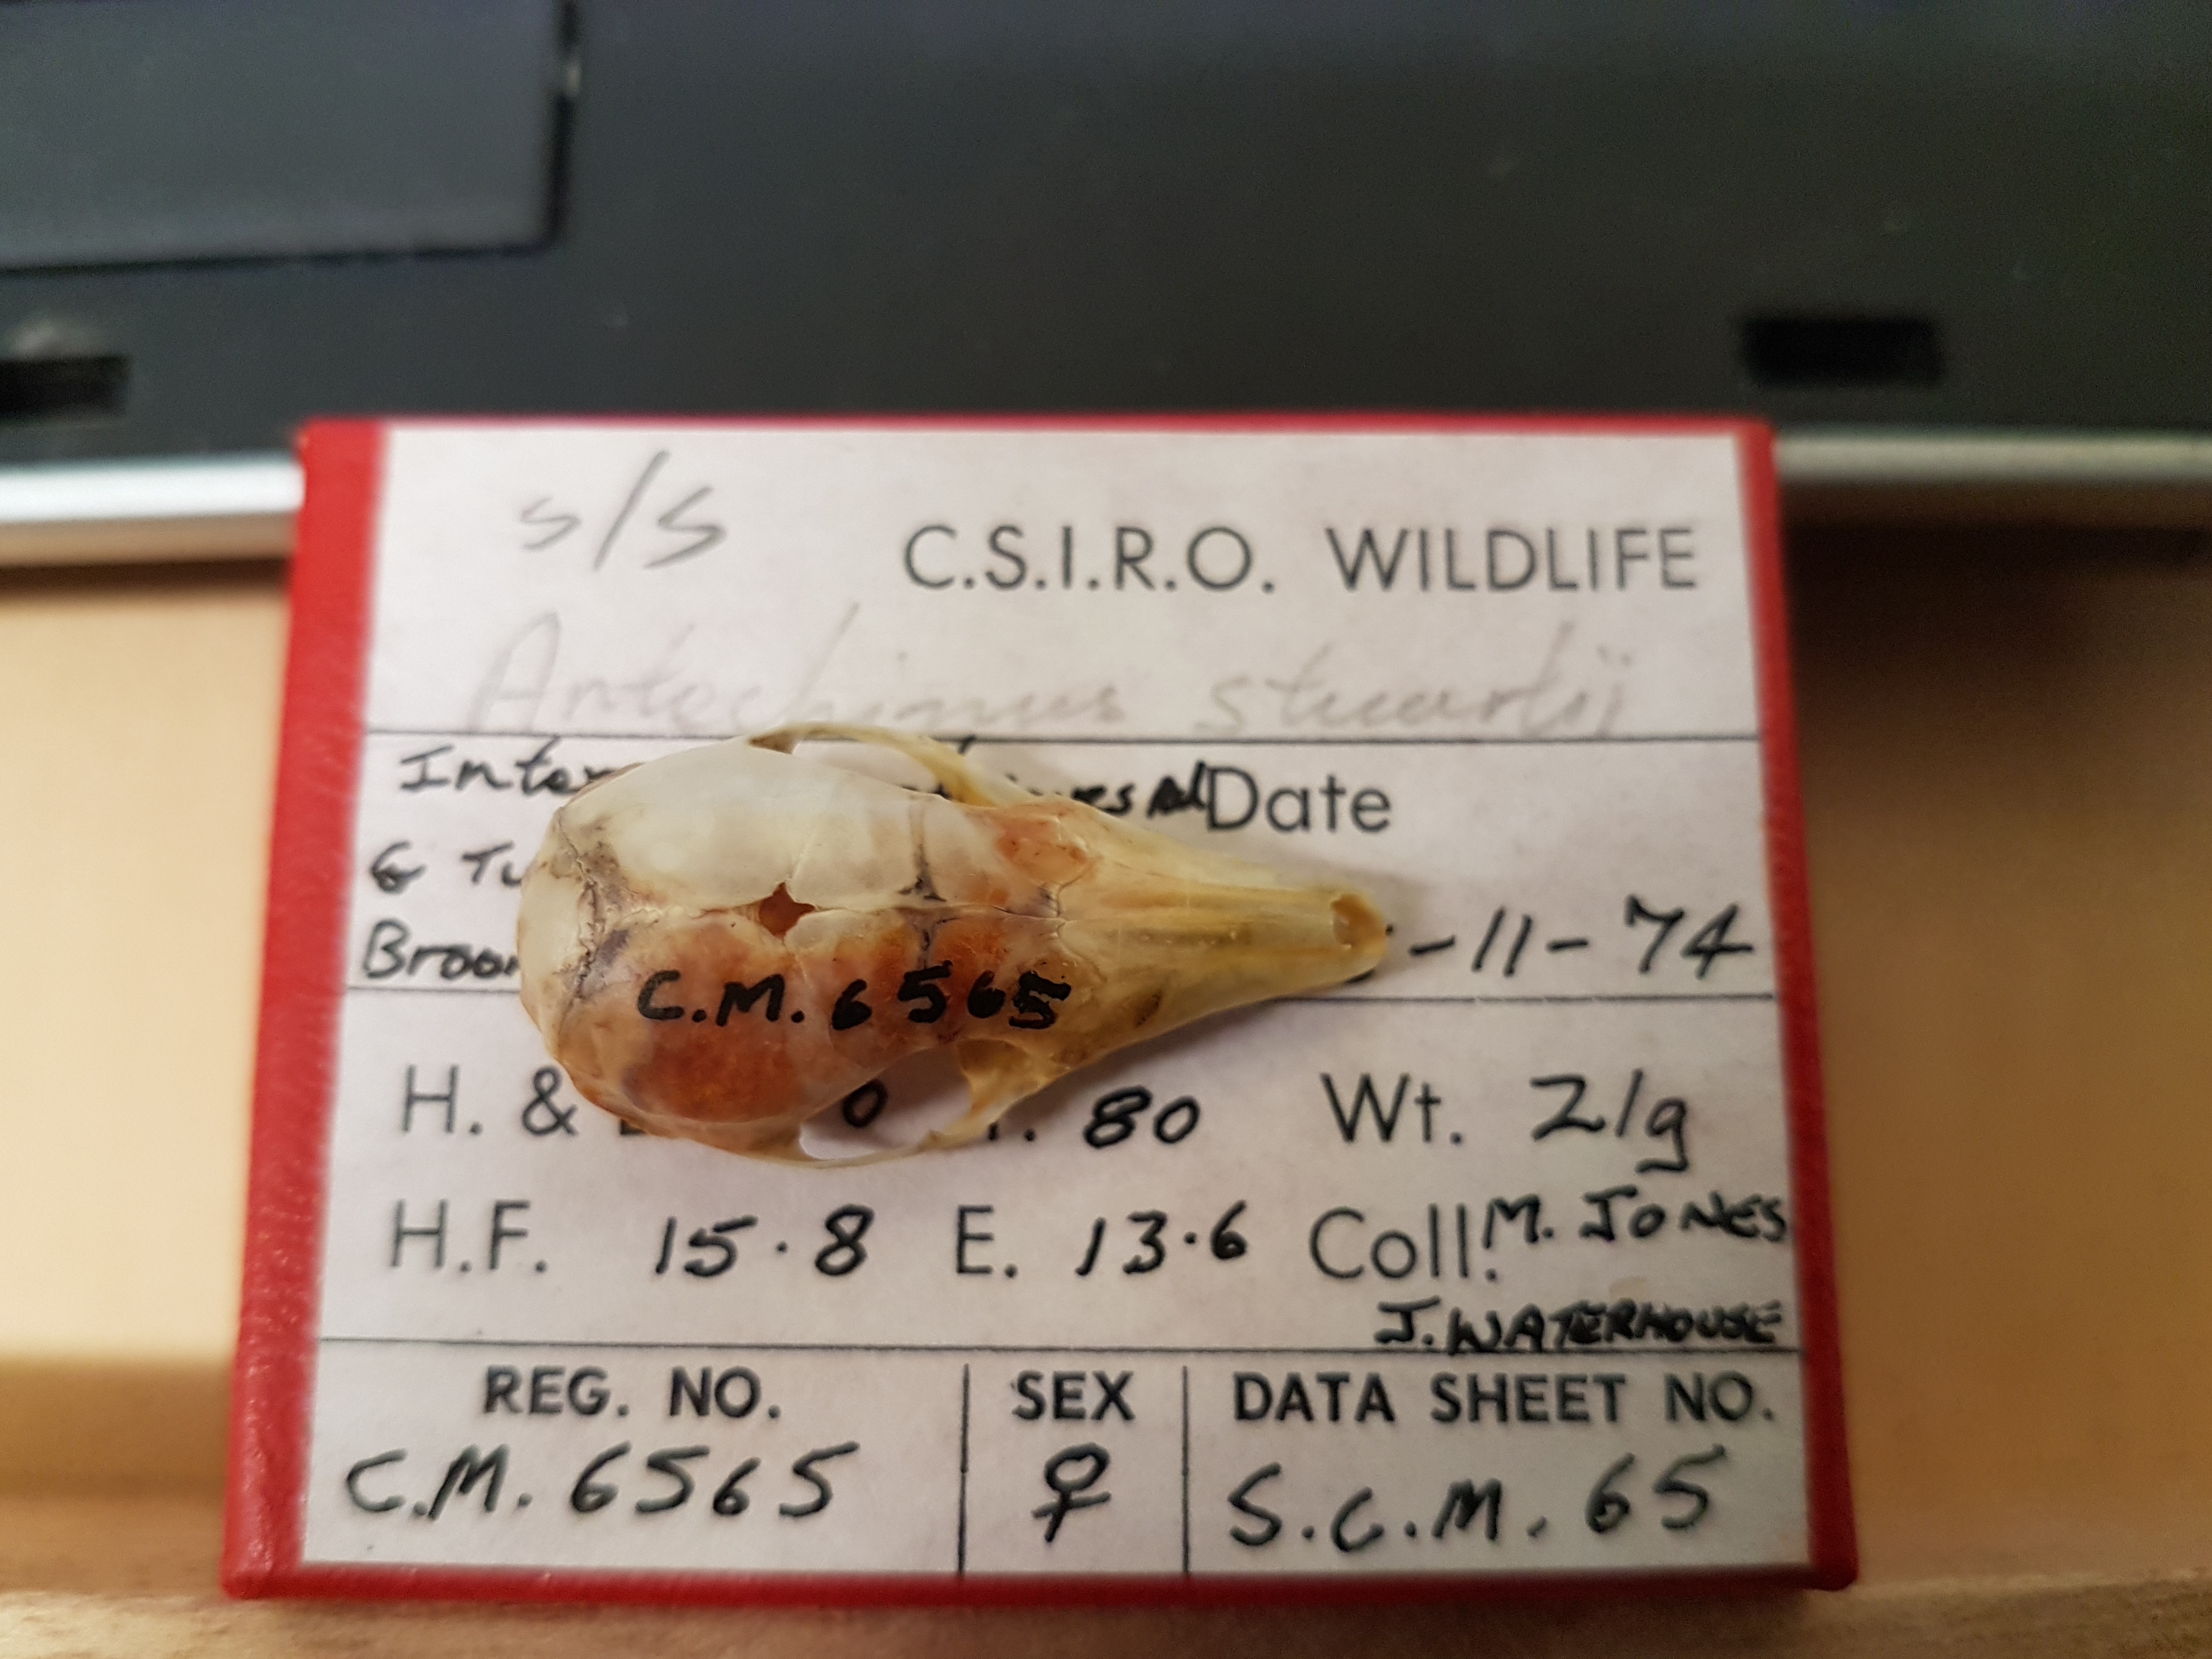 S/S C.S.I.R.O. WILDLIFE
Antechinus stuartii
Date
-11-74
H. & 80 Wt. 21g
H.F. 15.8 E. 13.6 Coll. M. JONES
J. WATERHOUSE
REG. NO. SEX DATA SHEET NO.
C.M. 6565 ♀ S.C.M. 65
C.M. 6565